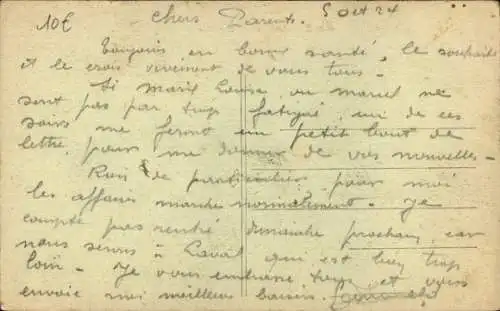 10€
Chers Parents. 5 Oct 24
Toujours en bonne santé, le souhaite
et le crois vivement de vous tous.
Si Marie Louise, ou Marcel ne
sont pas par trop fatigué, un de ces
soirs me feront un petit bout de
lettre pour me donner de vos nouvelles.
Rien de particulier pour moi
les affaires marchent normalement. Je
compte pas rentré dimanche prochain, car
nous serons à Laval qui est bien trop
loin. Je vous embrasse tous et vous
envoie mes meilleurs baisers.